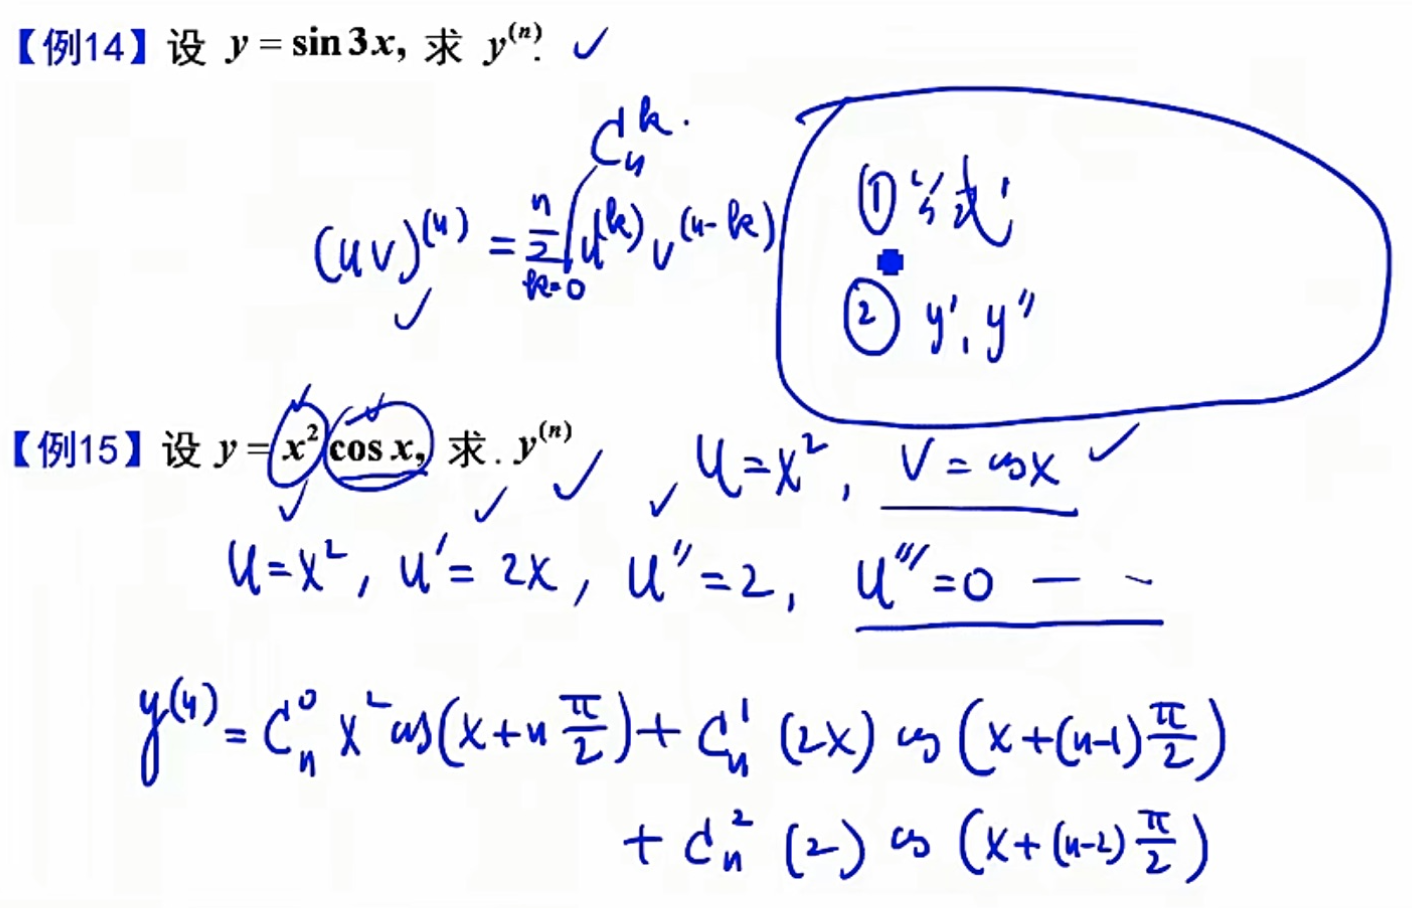 【例14】设 y = sin 3x, 求 y⁽ⁿ⁾. ✓
Cₙᵏ.
(uv)⁽ⁿ⁾ = ∑ₖ₌₀ⁿ u⁽ᵏ⁾ v⁽ⁿ⁻ᵏ⁾
① 公式
② y', y''
【例15】设 y = x² cos x, 求. y⁽ⁿ⁾
u = x², v = cos x
u = x², u' = 2x, u'' = 2, u''' = 0 — -
y⁽ⁿ⁾ = Cₙ⁰ x² cos(x + n π/2) + Cₙ¹ (2x) cos(x + (n-1) π/2)
+ Cₙ² (2) cos(x + (n-2) π/2)